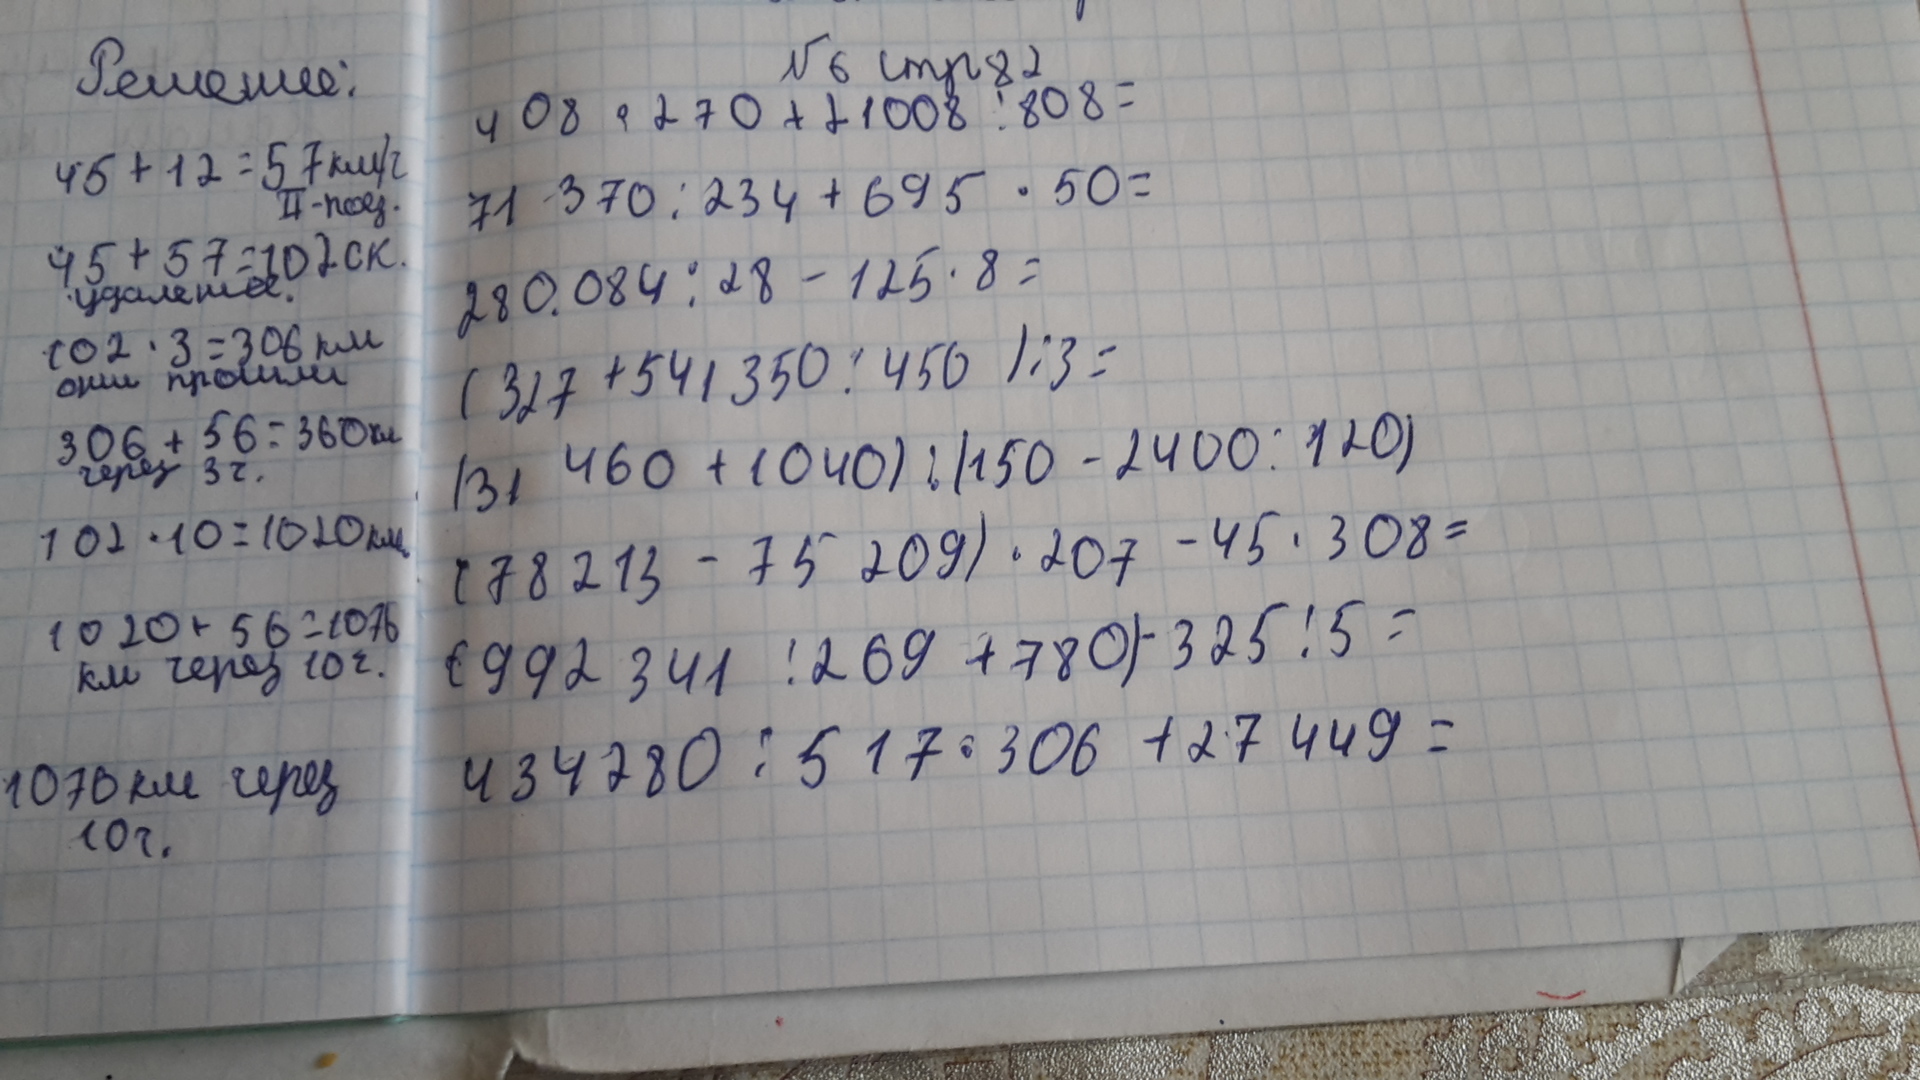 Решение:
45 + 12 = 57 км/ч
II-поез.
45 + 57 = 102 ск.
удаление.
102 · 3 = 306 км
они прошли
306 + 56 = 360 км
через 3 ч.
102 · 10 = 1020 км.
1020 + 56 = 1076
км через 10 ч.
1076 км через
10 ч.
№ 6 стр 82
408 · 270 + 21008 : 808 =
71 370 : 234 + 695 · 50 =
280.084 : 28 - 125 · 8 =
(327 + 541 350 : 450 ) : 3 =
(31 460 + 1040) : (150 - 2400 : 120)
(78 213 - 75 209) · 207 - 45 · 308 =
(992 341 : 269 + 780) - 325 : 5 =
434280 : 517 · 306 + 27 449 =